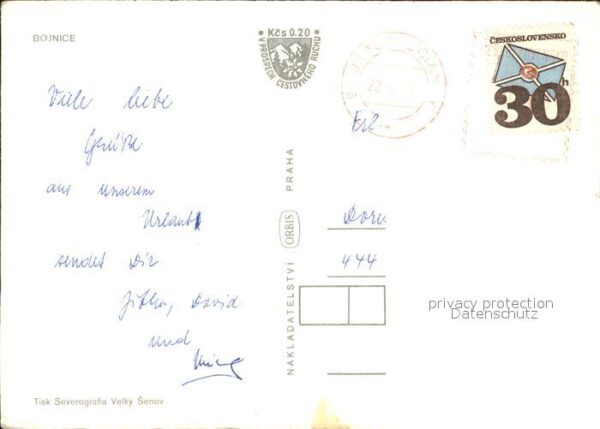 BOJNICE
Kčs 0.20
V PROSPĚCH CESTOVNÉHO RUCHU
ČESKOSLOVENSKO
30h
Viele liebe
Grüße
aus unserem
Urlaub
sendet Dir
Jitka, David
und
Frl.
Doris
444
NAKLADATELSTVÍ ORBIS PRAHA
privacy protection
Datenschutz
Tisk Severografia Velký Šenov